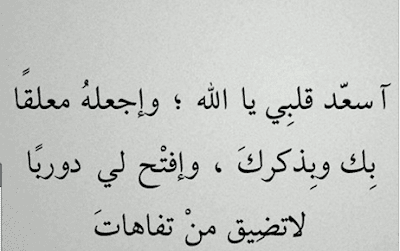 آسعّد قلبِي يا الله ؛ وإجعلهُ معلقًا
بِك وبِذكركَ ، وإفتْح لي دوربًا
لاتضِيق منْ تفاهاتَ